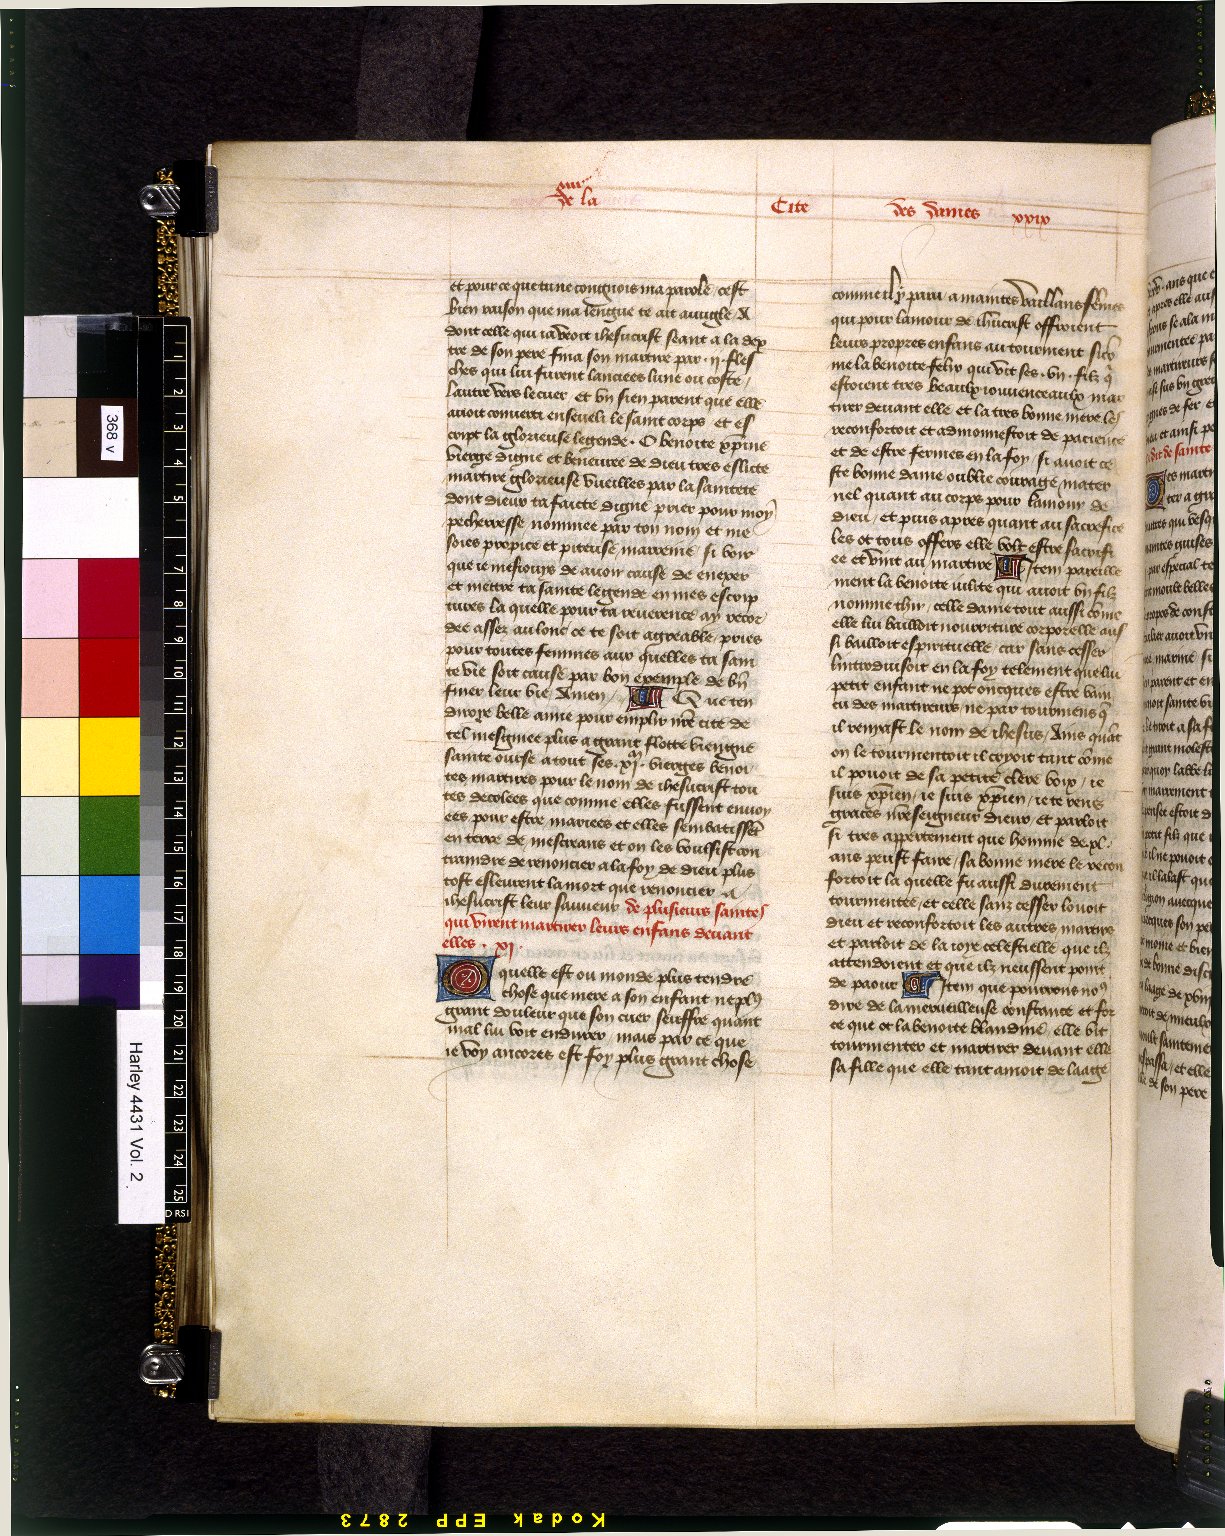 de la Cite des dames xxix
et pour ce que tu ne congnois ma parole / cest
bien raison que ma lengue te ait auugle A
dont celle qui ia veoit ihesucrist seant a la dex
tre de son pere fina son martire par .ij. fles
ches qui lui furent lanciees lune ou coste /
lautre vers le cuer . et vn sien parent que elle
auoit conuerti enseueli le saint corps et es
cript la glorieuse legende . O benoite xpine
vierge digne et beneuree de dieu tres eslitte
martire glorieuse vueilles par la sainteté
dont dieux ta faicte digne prier pour moy
pecherresse nommee par ton nom et me
soies propice et piteuse marreine si voir
que ie mesioujs de auoir cause de enexer
et mettre ta sainte legende en mes escrip
tures la quelle pour ta reuerence ay recor
dee assez au long ce te soit aggreable / pries
pour toutes femmes aux quelles ta sain
te vie soit cause par bon exemple de bien
finer leur vie Amen / Que ten
diroye belle amie pour emplir nre cite de
tel mesgniee plus a grant flotte viengne
sainte oursse a tout ses .xj. vierges benoi
tes martires pour le nom de ihesucrist tou
tes decolees que comme elles fussent enuoy
ees pour estre mariees et elles sembatissent
en terre de mescreans et on les voulsist con
traindre de renoncier a la foy de dieu plus
tost esleurent la mort que renoncier a
ihesucrist leur sauueur de plusieurs saintes
qui virent martirer leurs enfans deuant
elles . xj .
Quelle est ou monde plus tendre
chose que mere a son enfant ne plus
grant douleur que son cuer seuffre quant
mal lui voit endurer / mais par ce que
ie voy ancores est foy plus grant chose
comme il y paru a maintes vaillans femmes
qui pour lamour de ihucrist offroient
leurs propres enfans au tourment sicō
me la benoite felix qui vit ses .vij. filz q̄
estoient tres beaulx iouuenceaulx mar
tirer deuant elle et la tres bonne mere les
reconfortoit et admonnestoit de pacience
et de estre fermes en la foy / si auoit ce
ste bonne dame oublie courage mater
nel quant au corps pour lamour de
dieu / et puis apres quant au sacrefice
les ot tous offers elle volt estre sacrefi
ee et vint au martire Item pareille
ment la benoite iulite qui auoit vn filz
nomme thir / celle dame tout aussi cōme
elle lui bailloit nourriture corporelle aus
si bailloit espirituelle / car sans cesser
lintroduisoit en la foy telement que lui
petit enfant ne pot oncques estre vain
cu des martireurs ne par tourmens q̄
il reniast le nom de ihesus / Ains quāt
on le tourmentoit il crioit tant cōme
il pouoit de sa petite clere voix / ie
suis xpien / ie suis xpien / ie te rens
graces nre seigneur dieux et parloit
si tres appertement que homme de .xl.
ans peust faire / sa bonne mere le recon
fortoit la quelle fu aussi durement
tourmentee / et celle sanz cesser louoit
dieu et reconfortoit les autres martirs
et parloit de la ioye celestielle que ilz
attendoient et que ilz neussent point
de paour Item que pourrons nous
dire de la merueilleuse constance et for
ce que ot la benoite blandine / elle vit
tourmenter et martirer deuant elle
sa fille que elle tant amoit de la age
368 v
Harley 4431 Vol. 2
1
2
3
4
5
7
8
9
10
11
12
13
14
15
16
17
18
19
20
21
22
23
24
25
Kodak EPP 2873